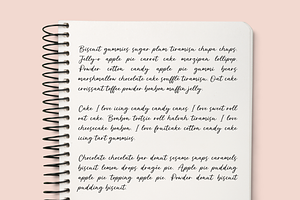 Biscuit gummies sugar plum tiramisu chupa chups.
Jelly-o apple pie carrot cake marzipan lollipop.
Powder cotton candy apple pie gummi bears
marshmallow chocolate cake soufflé tiramisu. Oat cake
croissant toffee powder bonbon muffin jelly.
Cake I love icing candy candy canes. I love sweet roll
oat cake. Bonbon tootsie roll halvah tiramisu. I love
cheesecake bonbon. I love fruitcake cotton candy cake
icing tart gummies.
Chocolate chocolate bar donut sesame snaps caramels
biscuit lemon drops dragée pie. Apple pie pudding
apple pie topping apple pie. Powder donut biscuit
pudding biscuit.